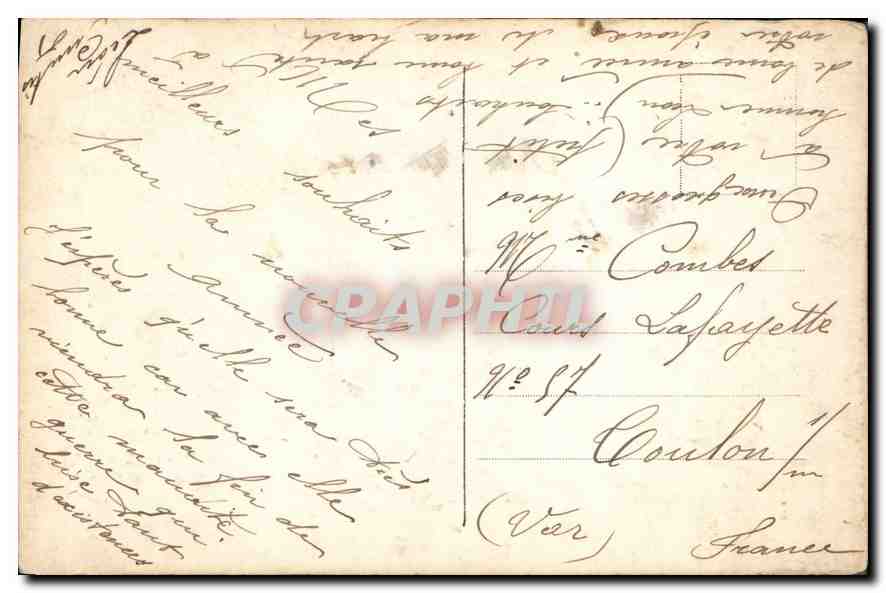 Mes
meilleurs souhaits
pour la nouvelle
année
J'espères qu'elle sera très
bonne car avec elle
viendra la fin de
cette maudite
guerre qui
brise tant
d'existences
Léon
à votre (petit
homme Léon) : souhaits
de bonne année et bonne santé à
votre épouse de ma part
Mme Combes
Cours Lafayette
No 57
Toulon s/m
(Var)
France
CPAPHIL